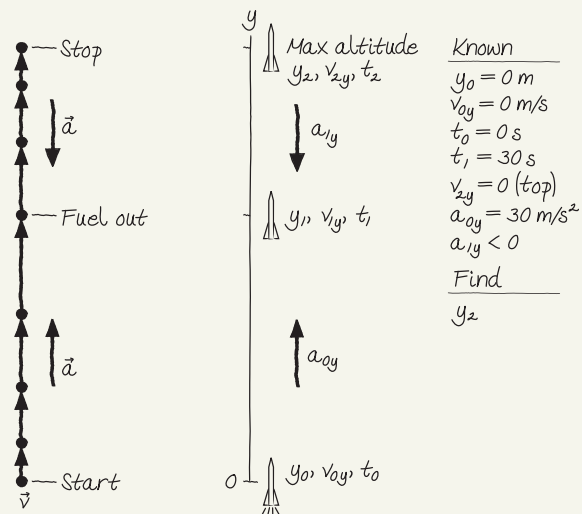 Stop
a⃗
Fuel out
a⃗
Start
v⃗
y
Max altitude
y₂, v₂y, t₂
a₁y
y₁, v₁y, t₁
a₀y
0
y₀, v₀y, t₀
Known
y₀ = 0 m
v₀y = 0 m/s
t₀ = 0 s
t₁ = 30 s
v₂y = 0 (top)
a₀y = 30 m/s²
a₁y < 0
Find
y₂